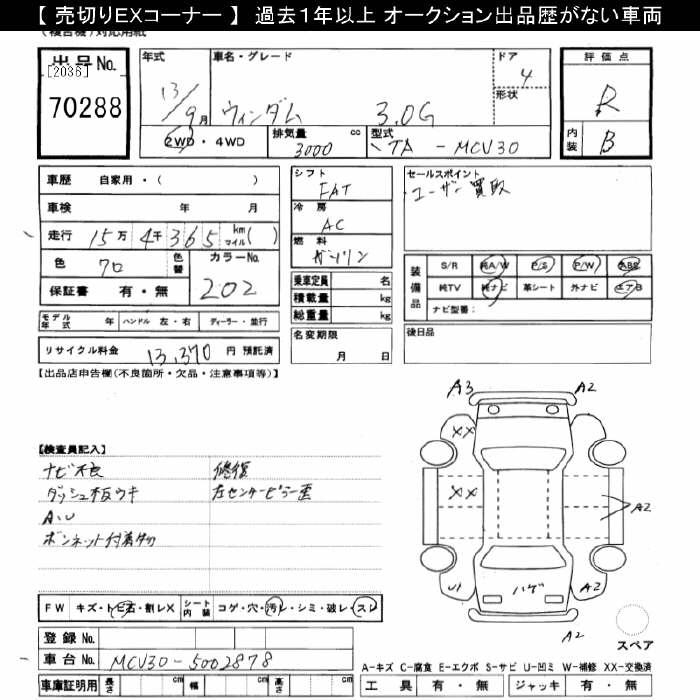 【 売切りEXコーナー 】 過去1年以上 オークション出品歴がない車両
(複合機)対応用紙
出品No. [2036] 70288
年式 13/9月
車名・グレード ウィンダム 3.0G
ドア 4
形状
評価点 R
内装 B
2WD・4WD
排気量 3000 cc
型式 TA - MCV30
車歴 自家用・( )
車検 年 月
走行 15万 4千 365 km マイル( )
色 クロ 色替
カラーNo. 202
保証書 有・無
シフト FAT
冷房 AC
燃料 ガソリン
乗車定員 名
積載量 kg
総重量 kg
セールスポイント
ユーザー買取
装備品
S/R 純A/W P/S P/W ABS
純TV 純ナビ 革シート 外ナビ エアB
ナビ型番：
モデル年式 年 ハンドル 左・右 ディーラー・並行
リサイクル料金 13,370 円 預託済
名変期限 月 日
後日品
【出品店申告欄(不良箇所・欠品・注意事項等)】
【検査員記入】
ナビ不良 修復
ダッシュ板ウキ 左センターピラー歪
A.U
ボンネット付着物
A3 A2
XX
XX
A2
U1 ハゲ A2
A2
スペア
FW キズ・トビ石・割レX シート内装 コゲ・穴・汚レ・シミ・破レ・スレ
登録No.
車台No. MCV30-5002878
車庫証明用 長さ cm 幅 cm 高さ cm
A-キズ C-腐食 E-エクボ S-サビ U-凹ミ W-補修 XX-交換済
工具 有・無 ジャッキ 有・無